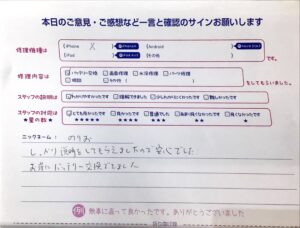 本日のご意見・ご感想など一言と確認のサインお願いします
修理機種は
iPhone X
Android
iPad
その他
です。
修理内容は
バッテリー交換 画面修理 水没修理 パーツ修理
相談 その他
をしてもらいました。
スタッフの説明は
わかりやすかったです 理解できました 少しわかりにくかったです 難しかったです
スタッフの対応は
★の数★
とても良かったです 良かったです 普通でした あまり良くなかったです 良くなかったです
★★★★★ ★★★★ ★★★ ★★ ★
ニックネーム: のりお
しっかり説明をしてもらえましたので安心でした
お得にバッテリー交換できました
例 無事に直って良かったです。ありがとうございました